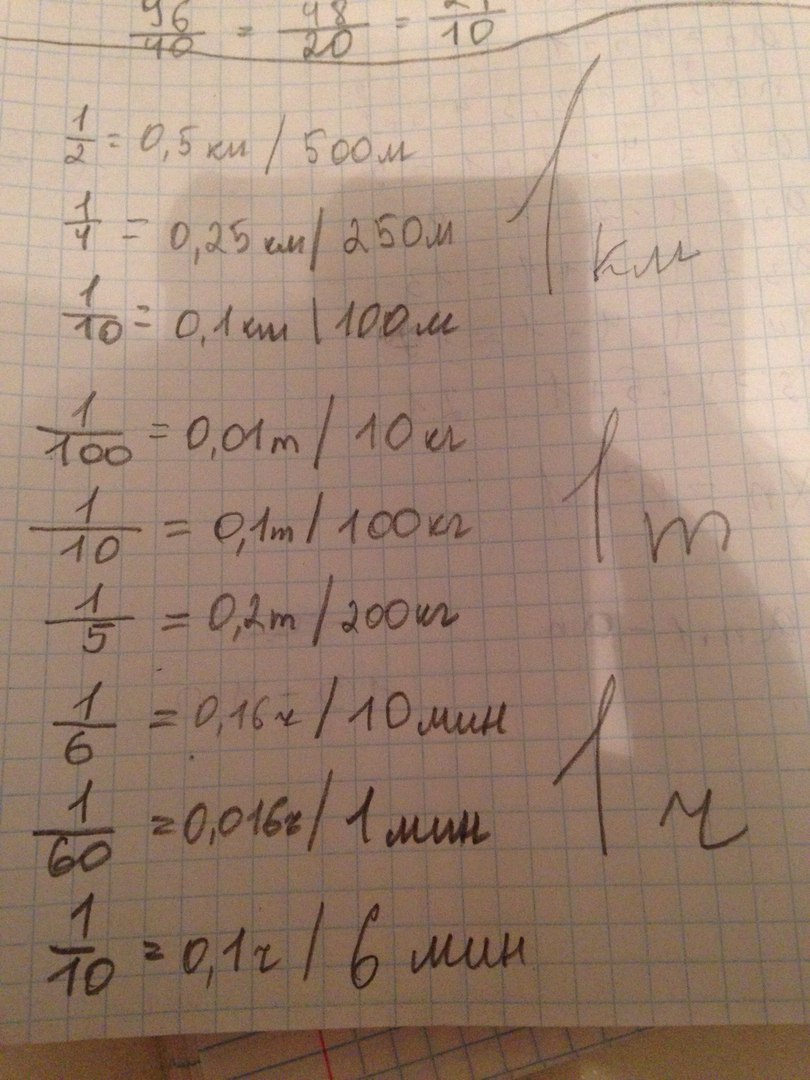 96/40 = 48/20 = 24/10
1/2 = 0,5 км / 500м
1/4 = 0,25 км / 250м
1 км
1/10 = 0,1 км \ 100м
1/100 = 0,01т / 10 кг
1 т
1/10 = 0,1т / 100 кг
1/5 = 0,2т / 200 кг
1/6 = 0,16ч / 10 мин
1 ч
1/60 = 0,016ч / 1 мин
1/10 = 0,1ч / 6 мин